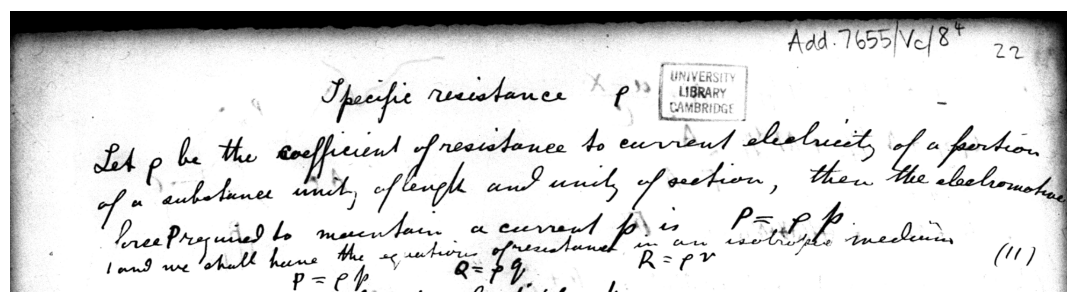 Add. 7655/Vc/8⁴ 22
Specific resistance ρ
UNIVERSITY
LIBRARY
CAMBRIDGE
Let ρ be the coefficient of resistance to current electricity of a portion
of a substance unity of length and unity of section, then the electromotive
force P required to maintain a current p is P = ρ p
and we shall have the equations of resistance in an isotropic medium
P = ρ p Q = ρ q R = ρ r (11)